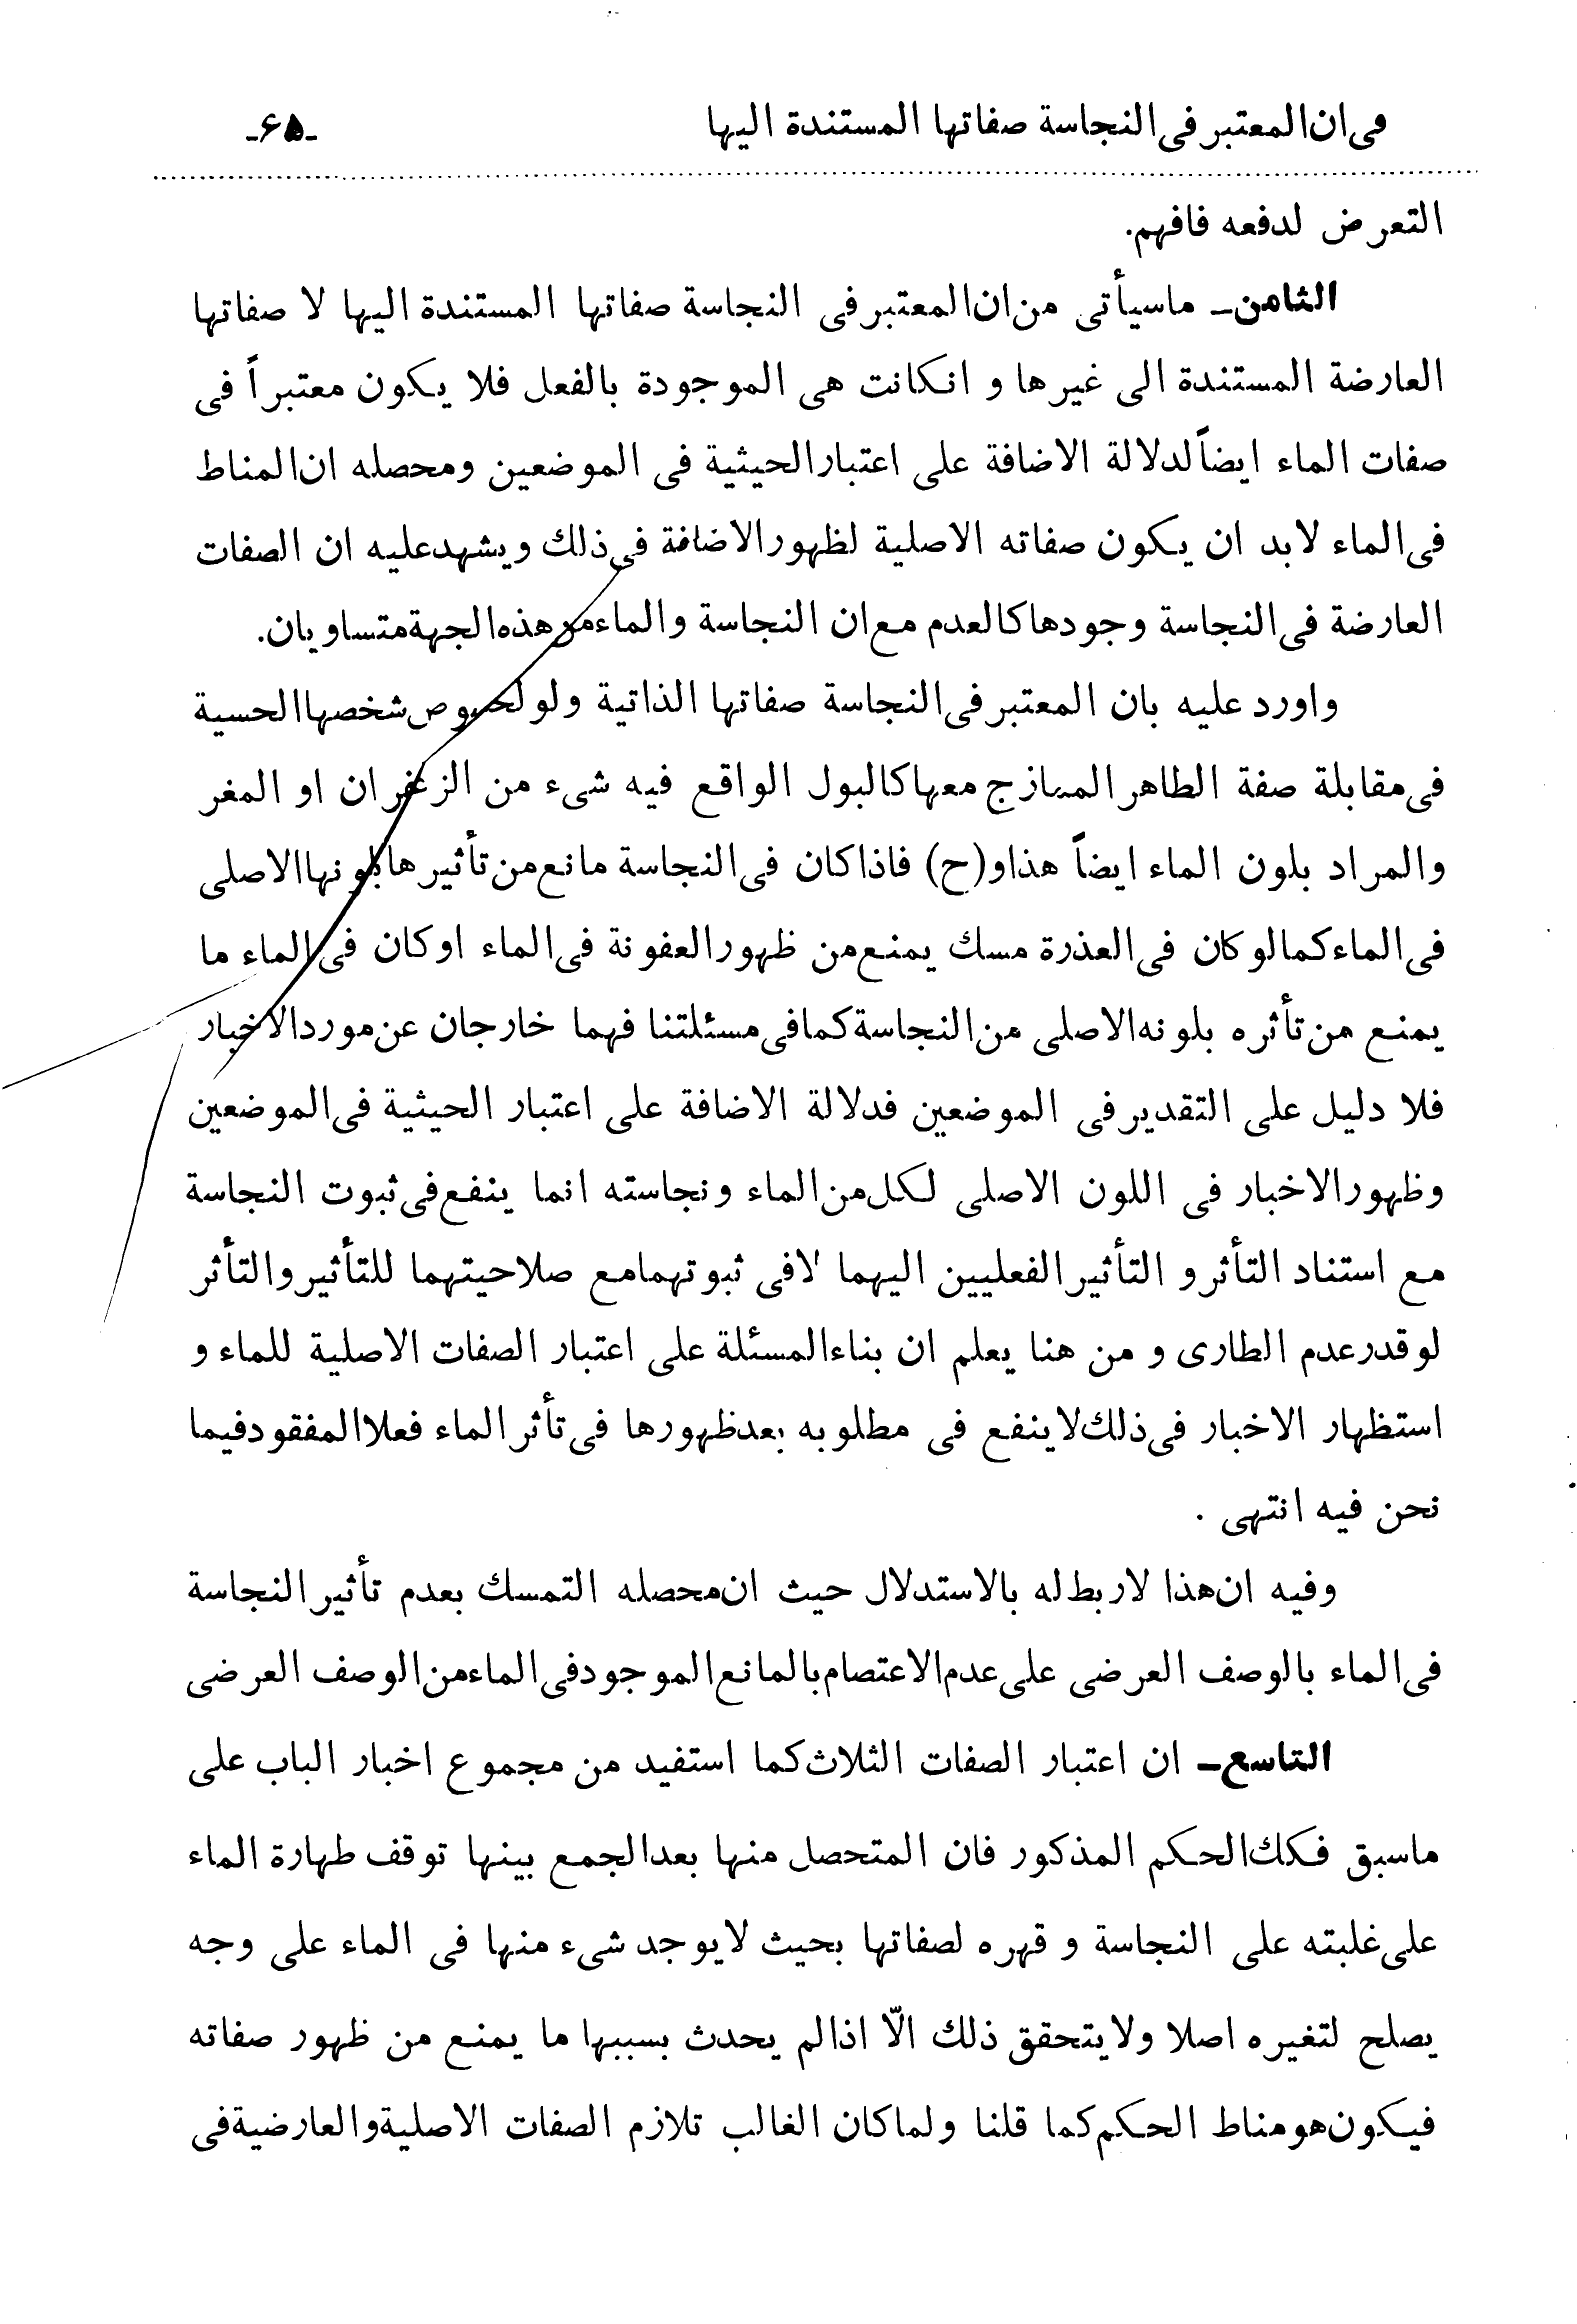 فى ان المعتبر فى النجاسة صفاتها المستندة اليها
-۶۵-
التعرض لدفعه فافهم.
الثامن ـ ماسيأتى من ان المعتبر فى النجاسة صفاتها المستندة اليها لا صفاتها
العارضة المستندة الى غيرها و انكانت هى الموجودة بالفعل فلا يكون معتبراً فى
صفات الماء ايضاً لدلالة الاضافة على اعتبار الحيثية فى الموضعين ومحصله ان المناط
فى الماء لابد ان يكون صفاته الاصلية لظهور الاضافة فى ذلك ويشهد عليه ان الصفات
العارضة فى النجاسة وجودها كالعدم مع ان النجاسة والماء من هذه الجهة متساويان.
واورد عليه بان المعتبر فى النجاسة صفاتها الذاتية ولو لخصوص شخصها الحسية
فى مقابلة صفة الطاهر الممازج معها كالبول الواقع فيه شىء من الزعفران او المغر
والمراد بلون الماء ايضاً هذا و (ح) فاذا كان فى النجاسة مانع من تأثيرها بلونها الاصلى
فى الماء كمالو كان فى العذرة مسك يمنع من ظهور العفونة فى الماء او كان فى الماء ما
يمنع من تأثره بلونه الاصلى من النجاسة كمافى مسئلتنا فهما خارجان عن مورد الاخبار
فلا دليل على التقدير فى الموضعين فدلالة الاضافة على اعتبار الحيثية فى الموضعين
وظهور الاخبار فى اللون الاصلى لكل من الماء ونجاسته انما ينفع فى ثبوت النجاسة
مع استناد التأثر و التأثير الفعليين اليهما لافى ثبوتهما مع صلاحيتهما للتأثير والتأثر
لو قدر عدم الطارى و من هنا يعلم ان بناء المسئلة على اعتبار الصفات الاصلية للماء و
استظهار الاخبار فى ذلك لاينفع فى مطلوبه بعد ظهورها فى تأثر الماء فعلا المفقود فيما
نحن فيه انتهى .
وفيه ان هذا لاربط له بالاستدلال حيث ان محصله التمسك بعدم تأثير النجاسة
فى الماء بالوصف العرضى على عدم الاعتصام بالمانع الموجود فى الماء من الوصف العرضى
التاسع ـ ان اعتبار الصفات الثلاث كما استفيد من مجموع اخبار الباب على
ماسبق فكك الحكم المذكور فان المتحصل منها بعد الجمع بينها توقف طهارة الماء
على غلبته على النجاسة و قهره لصفاتها بحيث لايوجد شىء منها فى الماء على وجه
يصلح لتغيره اصلا ولايتحقق ذلك الّا اذالم يحدث بسببها ما يمنع من ظهور صفاته
فيكون هو مناط الحكم كما قلنا ولما كان الغالب تلازم الصفات الاصلية والعارضية فى